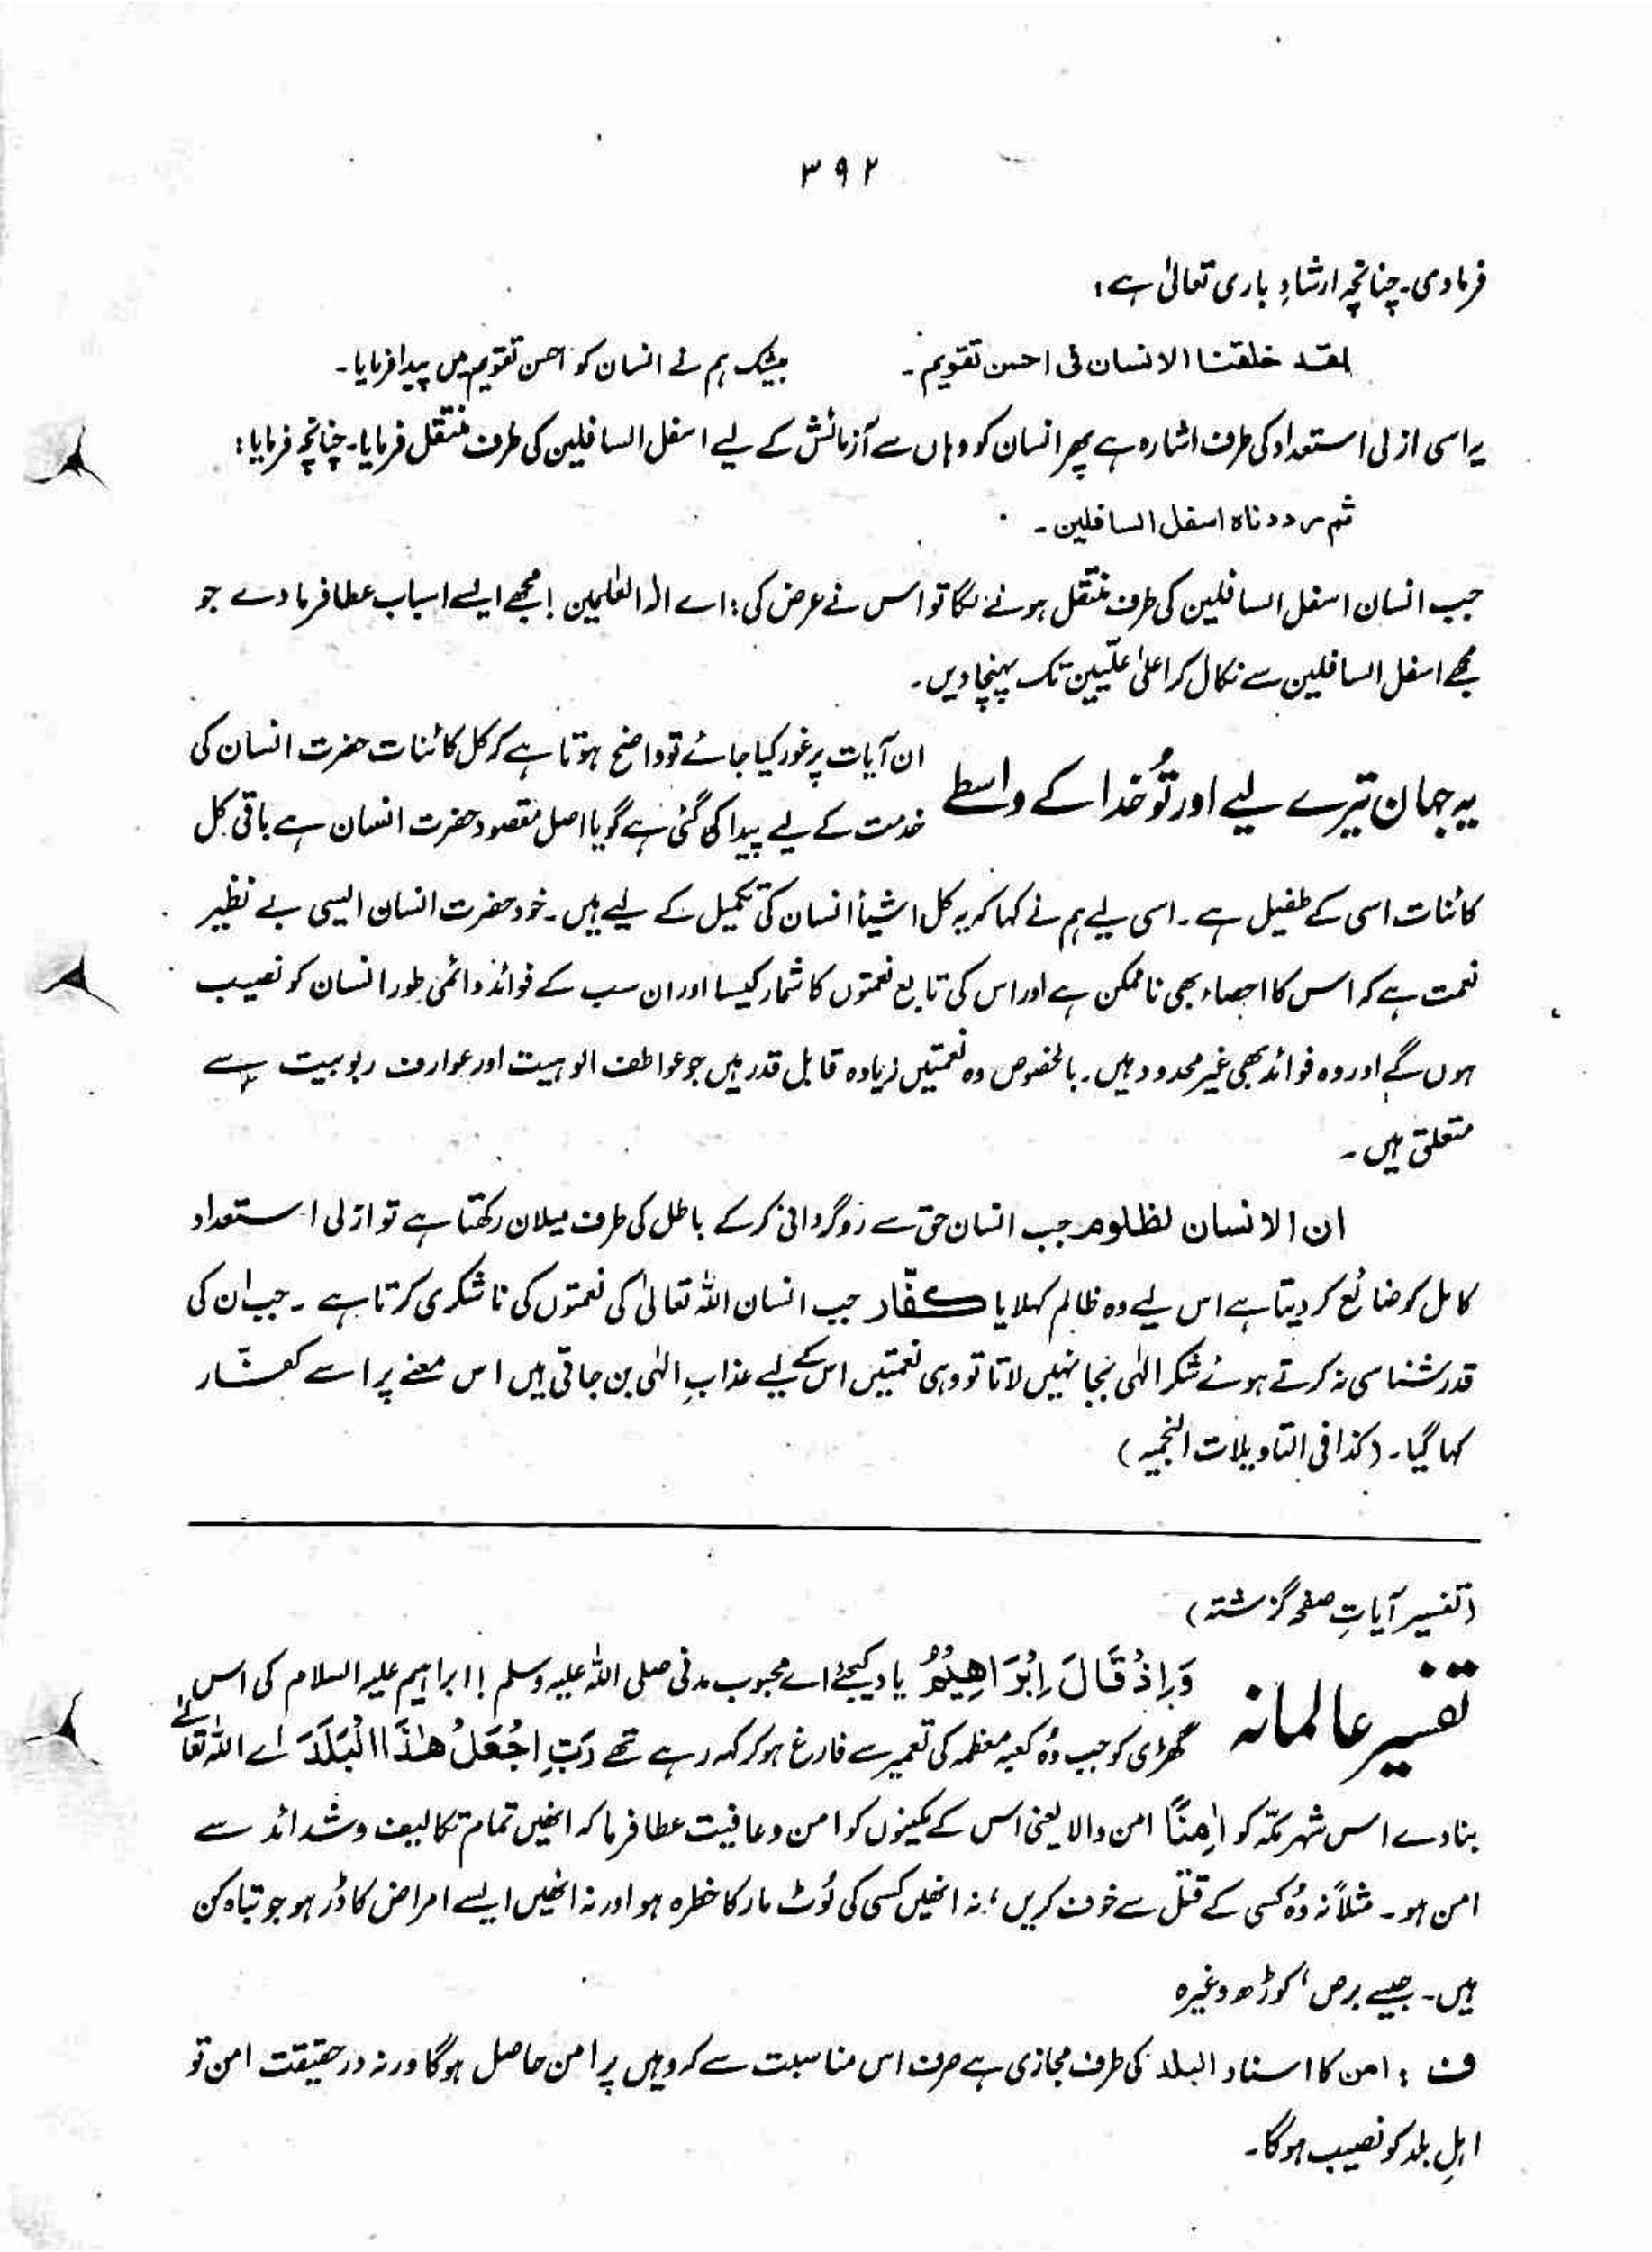 ۳۹۲
فرمادی۔ چنانچہ ارشادِ باری تعالیٰ ہے:
لقد خلقنا الانسان فی احسن تقویم۔ بیشک ہم نے انسان کو احسن تقویم میں پیدا فرمایا۔
یہ اسی ازلی استعداد کی طرف اشارہ ہے پھر انسان کو وہاں سے آزمائش کے لیے اسفل السافلین کی طرف منتقل فرمایا۔ چنانچہ فرمایا:
ثم رددناہ اسفل السافلین۔
جب انسان اسفل السافلین کی طرف منتقل ہونے لگا تو اس نے عرض کی: اے الٰہ العٰلمین! مجھے ایسے اسباب عطا فرما دے جو
مجھے اسفل السافلین سے نکال کر اعلیٰ علّیین تک پہنچا دیں۔
یہ جہان تیرے لیے اور تُو خدا کے واسطے
ان آیات پر غور کیا جائے تو واضح ہوتا ہے کہ کل کائنات حضرت انسان کی
خدمت کے لیے پیدا کی گئی ہے گویا اصل مقصود حضرت انسان ہے باقی کل
کائنات اسی کے طفیل ہے۔ اسی لیے ہم نے کہا کہ یہ کل اشیأ انسان کی تکمیل کے لیے ہیں۔ خود حضرت انسان ایسی بے نظیر
نعمت ہے کہ اس کا احصاء بھی ناممکن ہے اور اس کی تابع نعمتوں کا شمار کیسا اور ان سب کے فوائد دائمی طور انسان کو نصیب
ہوں گے اور وہ فوائد بھی غیر محدود ہیں۔ بالخصوص وہ نعمتیں زیادہ قابل قدر ہیں جو عواطف الوہیت اور عوارف ربوبیت سے
متعلق ہیں۔
ان الانسان لظلوم جب انسان حق سے روگردانی کرکے باطل کی طرف میلان رکھتا ہے تو ازلی استعداد
کامل کو ضائع کر دیتا ہے اس لیے وہ ظالم کہلایا کفّار جب انسان اللہ تعالیٰ کی نعمتوں کی ناشکری کرتا ہے۔ جب ان کی
قدر شناسی نہ کرتے ہوئے شکر الٰہی بجا نہیں لاتا تو وہی نعمتیں اس کے لیے عذابِ الٰہی بن جاتی ہیں اس معنے پر اسے کفّار
کہا گیا۔ (کذا فی التاویلات النجمیہ)
(تفسیر آیاتِ صفحہ گزشتہ)
تفسیر عالمانہ
وَاِذْ قَالَ اِبْرَاهِیْمُ یاد کیجئے اے محبوب مدنی صلی اللہ علیہ وسلم! ابراہیم علیہ السلام کی اس
گھڑی کو جب وُہ کعبہ معظمہ کی تعمیر سے فارغ ہو کر کہہ رہے تھے رَبِّ اجْعَلْ هٰذَا الْبَلَدَ اے اللہ تعالےٰ
بنادے اس شہر مکّہ کو اٰمِنًا امن والا یعنی اس کے مکینوں کو امن و عافیت عطا فرما کہ انھیں تمام تکالیف و شدائد سے
امن ہو۔ مثلاً نہ وُہ کسی کے قتل سے خوف کریں، نہ انھیں کسی کی لُوٹ مار کا خطرہ ہو اور نہ انھیں ایسے امراض کا ڈر ہو جو تباہ کن
ہیں۔ جیسے برص، کوڑھ وغیرہ
ف : امن کا اسناد البلد کی طرف مجازی ہے صرف اس مناسبت سے کہ وہیں پر امن حاصل ہوگا ورنہ درحقیقت امن تو
اہلِ بلد کو نصیب ہوگا۔